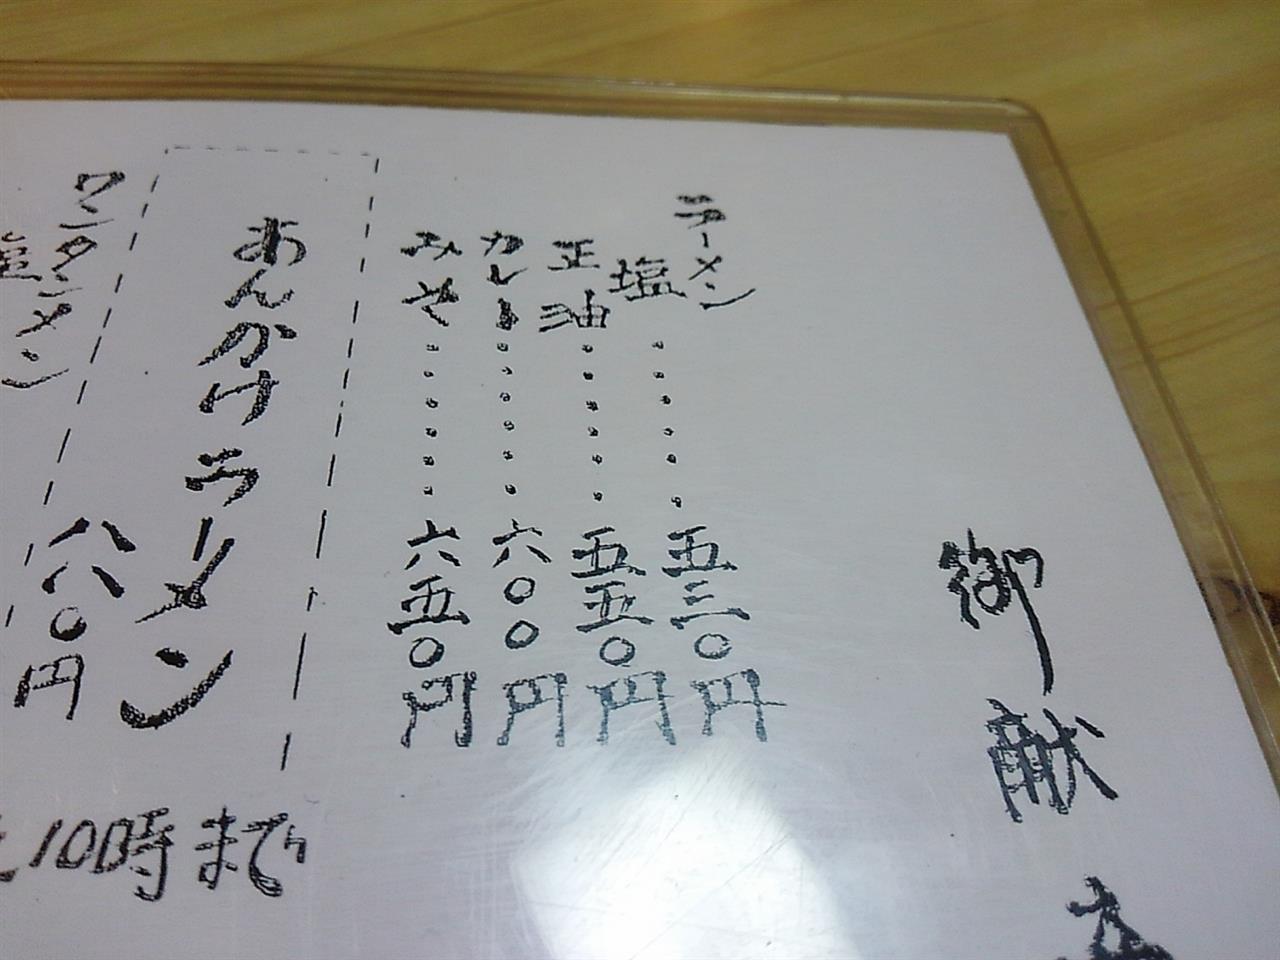 御献立
ラーメン
塩・・・・・・五三〇円
正油・・・・・・五五〇円
カレー・・・・・・六〇〇円
みそ・・・・・・六五〇円
あんかけラーメン
八八〇円
ワンタンメン
塩
10時まで